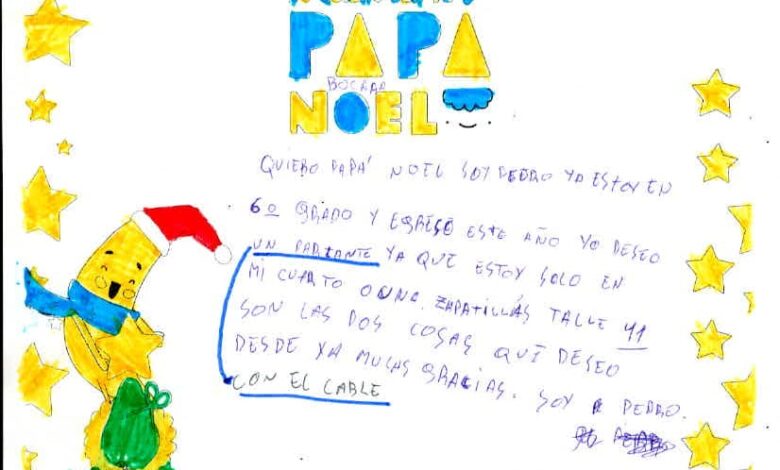 PAPA
NOEL
QUIERO PAPÁ NOEL SOY PEDRO YA ESTOY EN
6º GRADO Y ESTE AÑO YO DESEO
UN PARLANTE YA QUE ESTOY SOLO EN
MI CUARTO O UNA ZAPATILLAS TALLE 41
SON LAS DOS COSAS QUE DESEO
DESDE YA MUCAS GRACIAS. SOY PEDRO.
CON EL CABLE